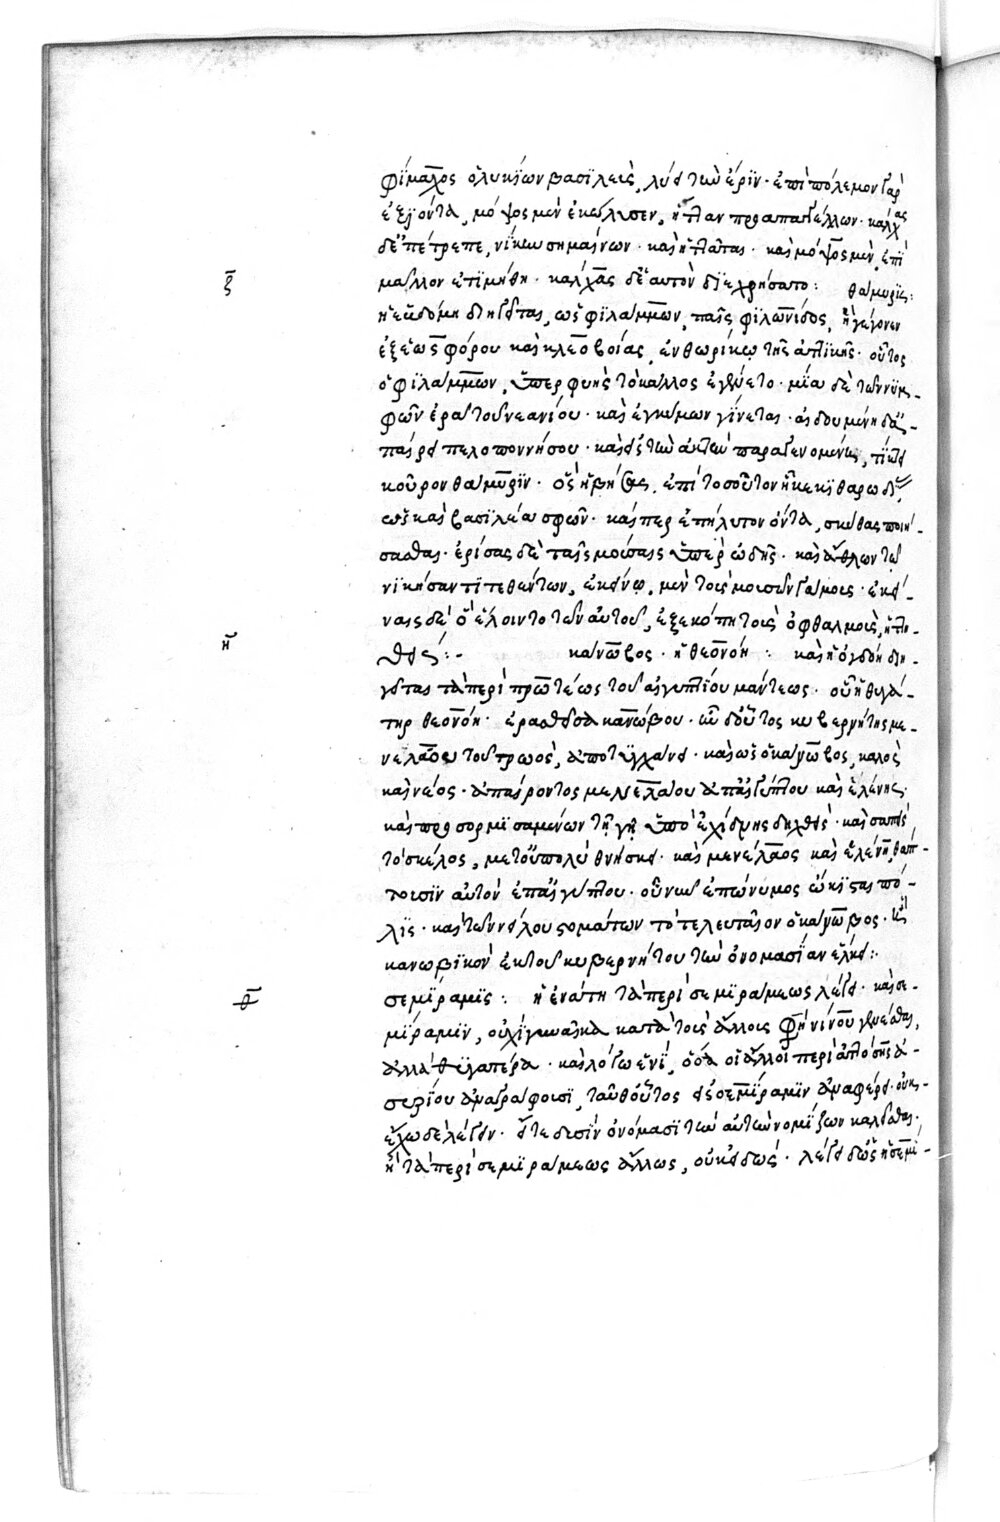 φίμαχος ὁ λυκίων βασιλεὺς, λύει τὴν ἔριν· ἐπὶ πόλεμον γὰρ
ἐξιόντα, μόψος μὲν ἐκώλυσεν, ἧτταν προαπαγγέλλων· κάλχας
δὲ ἐπέτρεπε, νίκην σημαίνων· καὶ ἥττηται· καὶ μόψος μὲν, ἐπὶ
μᾶλλον ἐτιμήθη· κάλχας δὲ ἑαυτὸν διεχρήσατο: θάμυρις:
ζ
ἡ ἑβδόμη διηγεῖται, ὡς φιλάμμων, παῖς φιλωνίδος, ἣ γέγονεν
ἐξ ἑωσφόρου καὶ κλεοβοίας, ἐν θωρικῷ τῆς ἀττικῆς· οὗτος
ὁ φιλάμμων, ὑπερφυὴς τὸ κάλλος ἐγένετο· μία δὲ τῶν νυμ-
φῶν ἐρᾷ τοῦ νεανίου· καὶ ἐγκύμων γίνεται· αἰδουμένη δὲ ἀ-
παίρει πελοποννήσου· καὶ εἰς τὴν ἀκτὴν παραγενομένη, τίκτει
κοῦρον θάμυριν· ὃς ἡβήσας, ἐπὶ τοσοῦτον ἧκε κιθαρῳδίας,
ὡς καὶ βασιλέα σφῶν· καίπερ ἐπηλύτην ὄντα, σκύθας ποιή-
σασθαι· ἐρίσας δὲ ταῖς μούσαις ὑπὲρ ᾠδῆς· καὶ ἄθλων τῷ
νικήσαντι τεθέντων, ἐκείνῳ μὲν τοὺς μουσῶν γάμους· ἐκεί-
ναις δὲ ὃ ἕλοιντο τῶν αὐτοῦ, ἐξεκόπη τοὺς ὀφθαλμοὺς, ἡττη-
θείς:-
η
κάνωβος· ἡ θεονόη: καὶ ἡ ὀγδόη διη-
γεῖται τὰ περὶ πρωτέως τοῦ αἰγυπτίου μάντεως· οὗ ἡ θυγά-
τηρ θεονόη· ἐρασθεῖσα κανώβου· ἦν δ' οὗτος κυβερνήτης με-
νελάου τοῦ τρωὸς, ἀποτυγχάνει· καὶ ὡς ὁ κάνωβος, καλὸς
καὶ νέος· ἀπαίροντος μενελάου ἀπ' αἰγύπτου καὶ ἑλένης·
καὶ προσορμισαμένων τῇ γῇ ὑπὸ ἐχίδνης δηχθεὶς· καὶ σαπεὶς
τὸ σκέλος, μετ' οὐ πολὺ θνήσκει· καὶ μενέλαος καὶ ἑλένη, θάπ-
τουσιν αὐτὸν ἐπ' αἰγύπτου· οὗ νῦν ἐπώνυμος ᾤκισται πό-
λις· καὶ τῶν νείλου στομάτων τὸ τελευταῖον ὁ κάνωβος· ἢ
κανωβικὸν ἐκ τοῦ κυβερνήτου τὴν ὀνομασίαν ἕλκει:
θ
σεμίραμις: ἡ ἐνάτη τὰ περὶ σεμιράμεως λέγει· καὶ σε-
μίραμιν, οὐχὶ γυναῖκα κατὰ τοὺς ἄλλους φησὶ νίνου γενέσθαι,
ἀλλὰ θυγατέρα· καὶ λόγῳ ἑνὶ, ὅσα οἱ ἄλλοι περὶ ἀτόσσης ἀσ-
συρίου ἀναγράφουσι, ταῦθ' οὗτος εἰς σεμίραμιν ἀναφέρει· οὐκ
ἔχω δὲ λέγειν· εἴτε δυσὶν ὀνόμασι τὴν αὐτὴν νομίζων καλεῖσθαι·
ἢ τὰ περὶ σεμιράμεως ἄλλως, οὐκ εἰδώς· λέγει δ' ὡς ἡ σεμί-